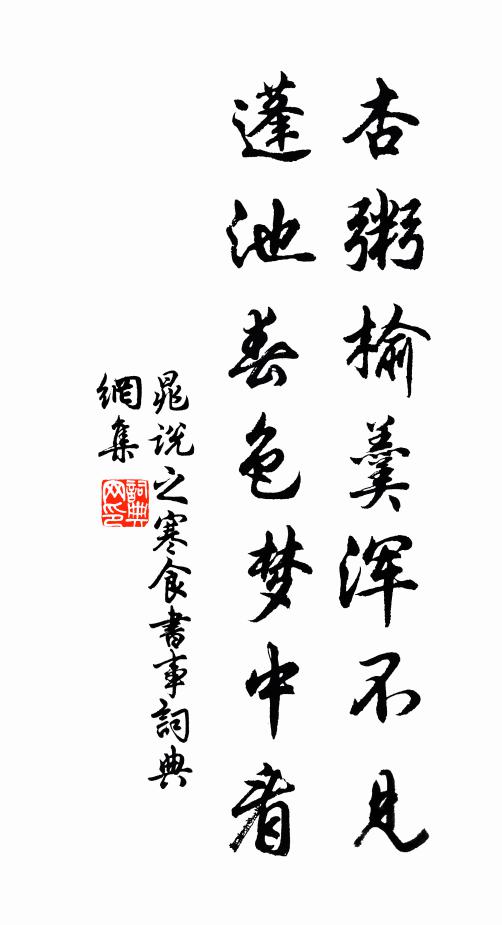 杏粥榆羹浑不见
蓬池春色梦中看
晁说之寒食書事詞典
網集
詞典網印